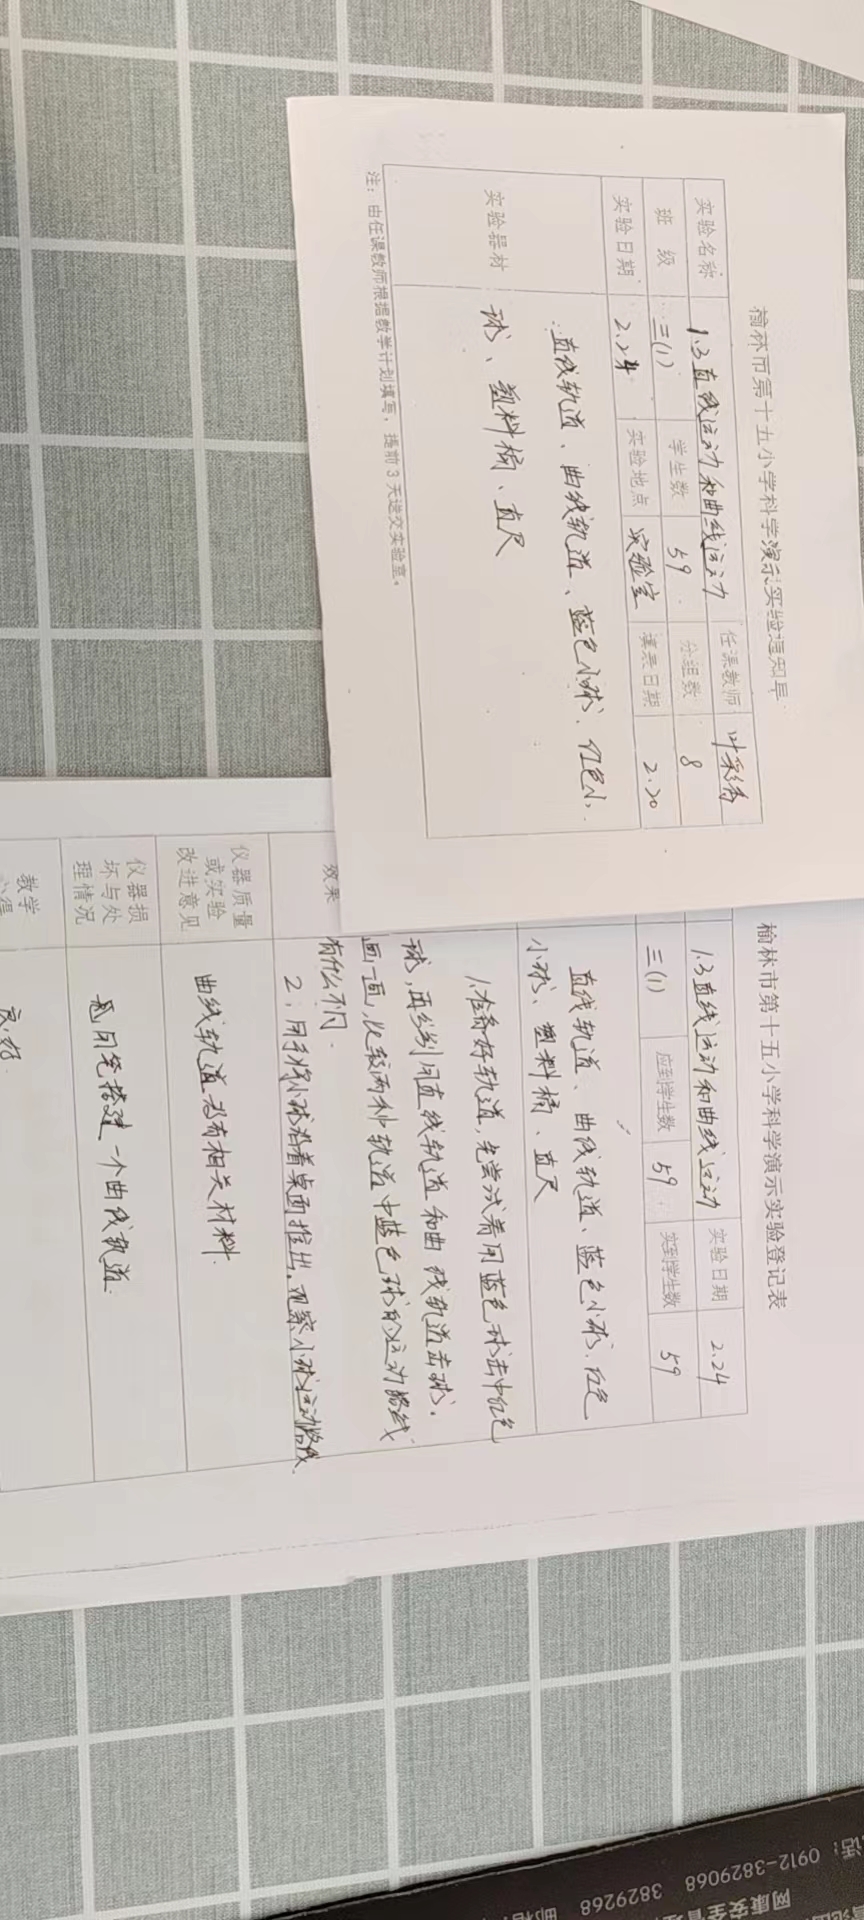 榆林市第十五小学科学演示实验通知单
实验名称 1.3直线运动和曲线运动 任课教师 叶彩香
班 级 三(1) 学生数 59 分组数 8
实验日期 2.24 实验地点 实验室 填表日期 2.20
实验器材 直线轨道、曲线轨道、蓝色小球、红色小
球、塑料桶、直尺
注：由任课教师根据教学计划填写，提前3天送交实验室。
榆林市第十五小学科学演示实验登记表
1.3直线运动和曲线运动 实验日期 2.24
三(1) 应到学生数 59 实到学生数 59
直线轨道、曲线轨道、蓝色小球、红色
小球、塑料桶、直尺
1.准备好轨道,先尝试着用蓝色球击中红色
球,再分别用直线轨道和曲线轨道击球。
画一画,比较两种轨道中蓝色球的运动路线
效果 有什么不同.
2.用手将小球沿着桌面推出,观察小球运动路线
仪器质量
或实验
改进意见
曲线轨道没有相关材料.
仪器损
坏与处
理情况
用笔搭建一个曲线轨道.
教学
心得
良好.
话：0912-3829068 3829268 邮
网康安全管